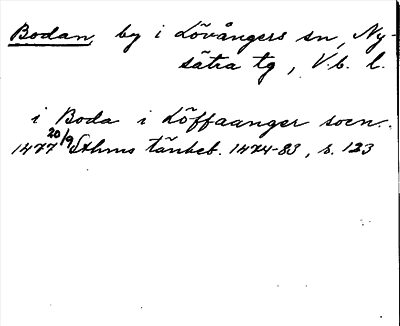 Bodan by i Lövångers sn, Ny-
sätra tg, V.b. l.
i Boda i Löffaanger socn.
1477 20/9 Sthms tänkeb. 1474-83, s. 123